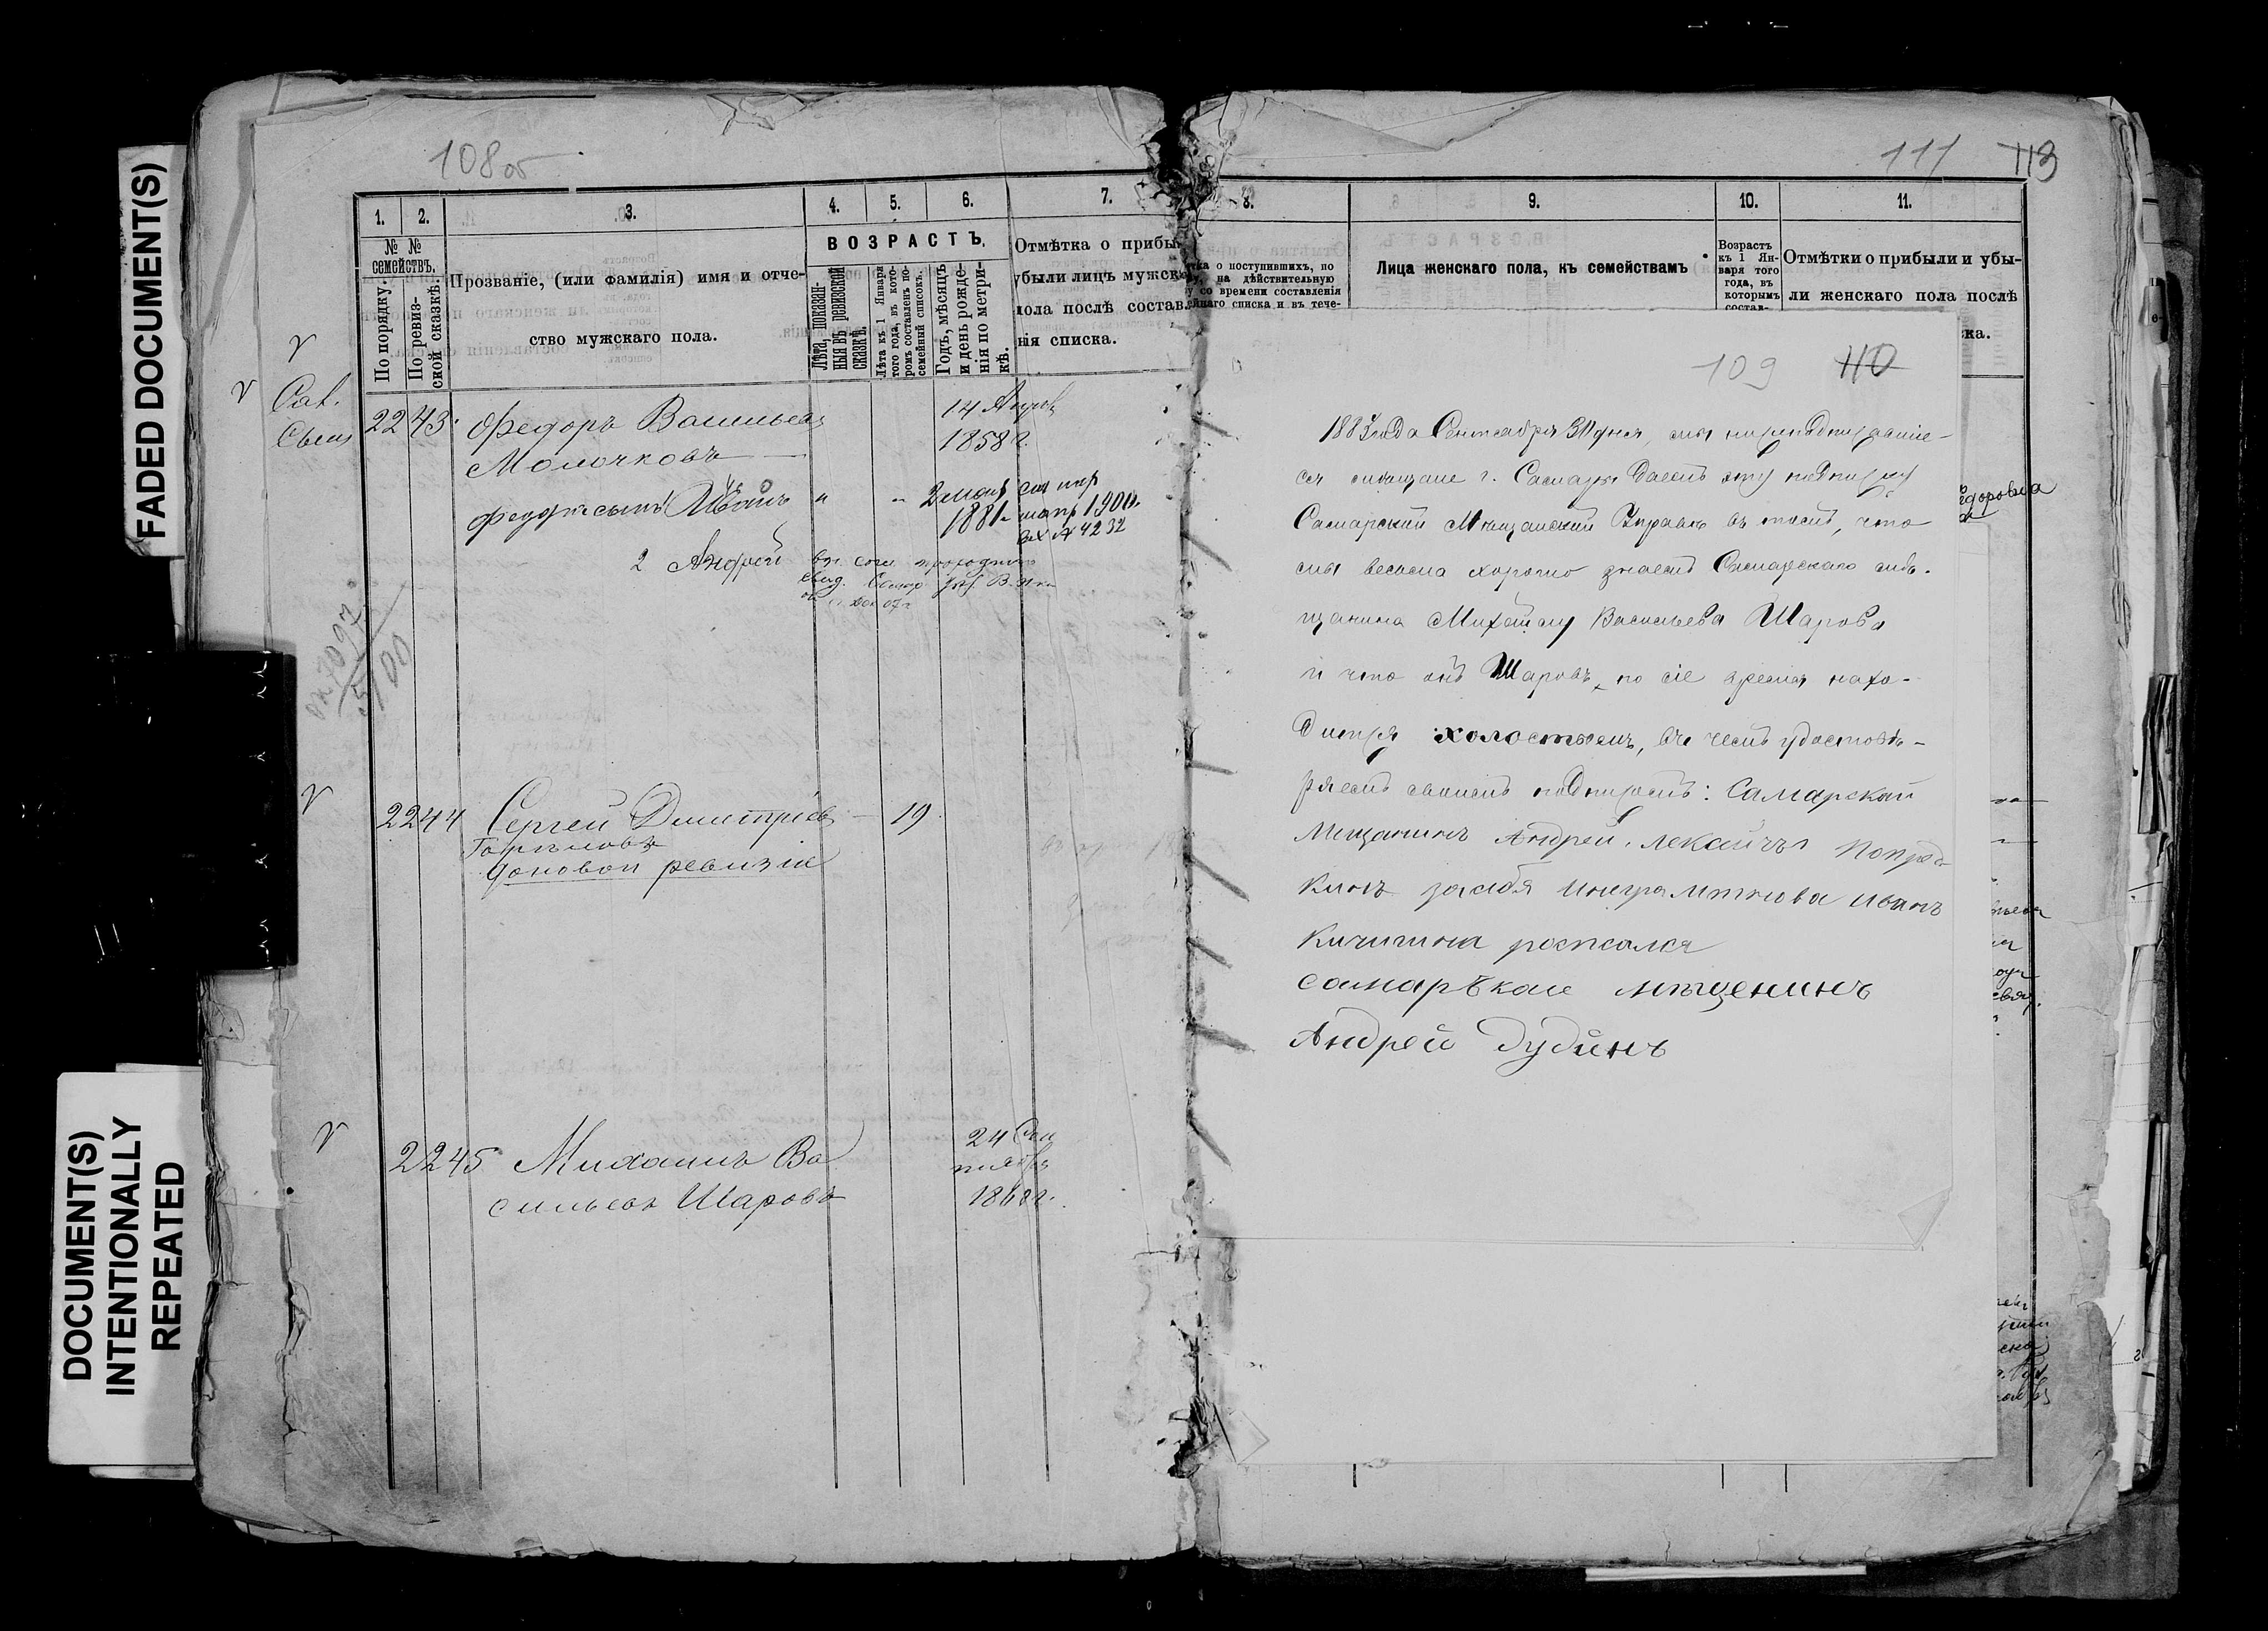 FADED DOCUMENT(S)
DOCUMENT(S)
INTENTIONALLY
REPEATED
108 об
1. 2. 3. 4. 5. 6. 7.
№ № семействъ.
По порядку.
По ревиз-
ской сказкѣ.
Прозваніе, (или фамилія) имя и отче-
ство мужскаго пола.
ВОЗРАСТЪ.
Лѣта, показан-
ныя въ ревизской
сказкѣ.
Лѣта къ 1 Января
того года, въ кото-
ромъ составленъ по-
семейный списокъ.
Годъ, мѣсяцъ
и день рожде-
нія по метри-
кѣ.
Отмѣтка о прибы
убыли лицъ мужск
пола послѣ состав
нія списка.
2243. Федоръ Васильевъ
Молочковъ
14 Апрѣ
1858 г.
Федора сынъ Иванъ
2 мая
1881
1900
вх № 4232
2 Андрей
7097
5/00
2244 Сергей Дмитріевъ 19
Горѣловъ
доновой ревизіи
2245 Михаилъ Ва
сильевъ Шаровъ
24 Сен
тября
1868 г.
111 113
8. 9. 10. 11.
тка о поступившихъ, по
у, на дѣйствительную
у со времени составленія
ейнаго списка и въ тече-
Лица женскаго пола, къ семействамъ
Возрастъ
къ 1 Ян-
варя того
года, въ
которымъ
состав-
Отмѣтки о прибыли и убы-
ли женскаго пола послѣ
ска.
109 110
1883 года Сентября 30 дня, мы нижеподписавшіе-
ся мѣщане г. Самары даемъ эту подписку
Самарской Мѣщанской Управѣ въ томъ, что
мы весьма хорошо знаемъ Самарскаго мѣ-
щанина Михаилу Васильева Шарова
и что онъ Шаровъ, по сіе время нахо-
дится холостымъ, въ чемъ удостовѣ-
ряемъ своимъ подписомъ: Самарскай
Мещанинъ Андрей
кинъ засибя Инеграмтнова Иванъ
Кичигина росписался
самарѣкае мѣщенинъ
Андрей Дудинъ
едоровна